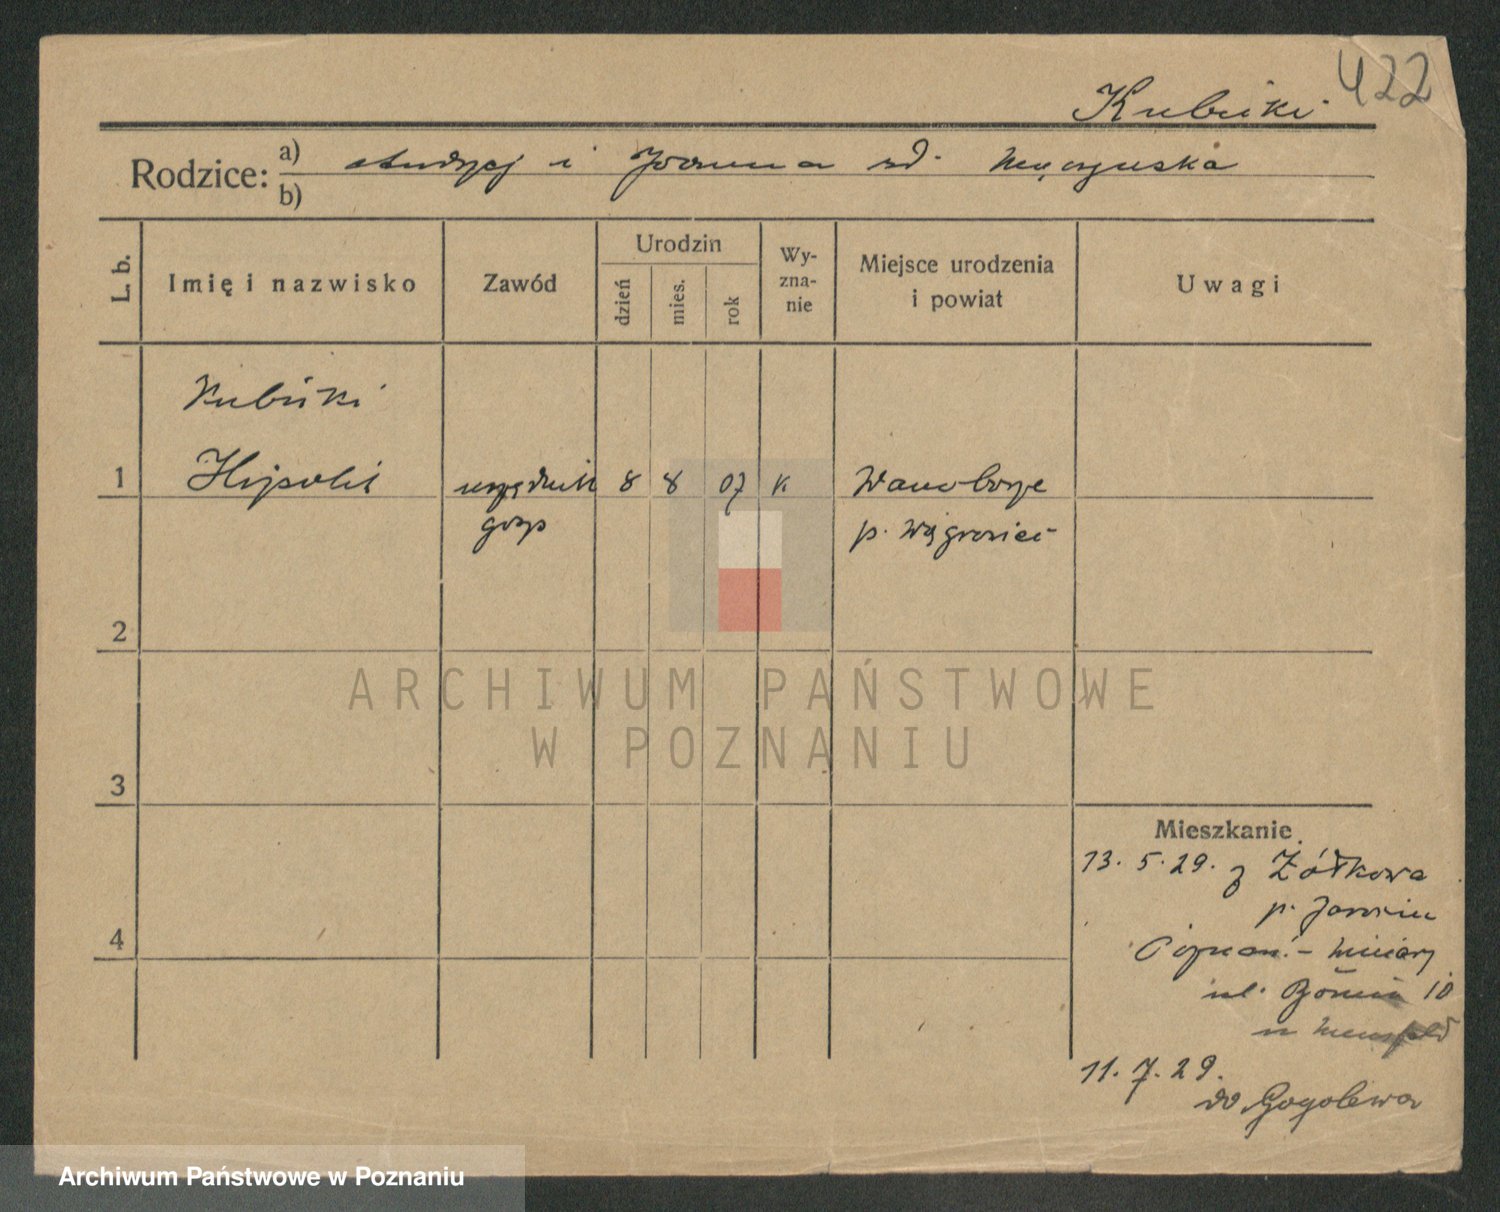 422
Kubicki
Rodzice: a) Andrzej i Joanna zd. Męczyńska
b)
L. b.
Imię i nazwisko
Zawód
Urodzin
dzień
mies.
rok
Wy-
zna-
nie
Miejsce urodzenia
i powiat
Uwagi
Kubicki
1 Hipolit urzędnik 8 8 07 k Wawoborze
gosp p. Wągrowiec
2
3
4
Mieszkanie
13. 5. 29. z Żółkowa
p. Jarocin
Poznań -
ul. 10
u
11. 7. 29.
do Gogolewa
ARCHIWUM PAŃSTWOWE
W POZNANIU
Archiwum Państwowe w Poznaniu